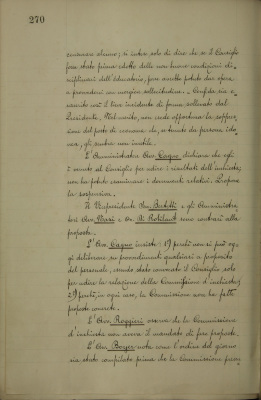 270
censura alcuna; si indica solo di dire che se il Consiglio
fosse stato prima edotto delle non buone condizioni di-
sciplinari dell'Educatorio, pure avrebbe potuto dar opera
a provvedervi con maggior sollecitudine. - Confida sia e-
saurito così il lieve incidente di forma sollevato dal
Presidente. Nel merito, non crede opportuna la soppres-
sione del posto di economo che, se tenuto da persona ido-
nea, gli sembra non inutile.
L'Amministratore Avv. Cagno dichiara che egli
è venuto al Consiglio per udire i risultati dell'inchiesta;
non ha potuto esaminare i documenti relativi. Propone
la sospensiva.
Il Vicepresidente On. e gli Amministra-
tori Avv. e On. Di Rovasenda sono contrarii alla
proposta.
L'Avv. Cagno insiste: 1°) perché non si può og-
gi deliberare su provvedimenti qualsiasi a proposito
del personale, essendo stato convocato il Consiglio solo
per udire la relazione della Commissione d'inchiesta;
2°) perché, in ogni caso, la Commissione non ha fatto
proposte concrete.
L'Avv. Ruggieri osserva che la Commissione
d'inchiesta non aveva il mandato di fare proposte.
L'Avv. nota come l'ordine del giorno
sia stato compilato prima che la Commissione